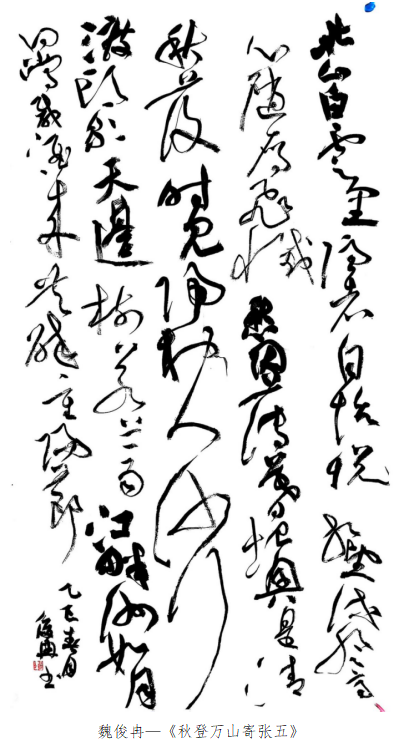 北山白雲里隐者自怡悦相望试登高
心随雁飛滅愁因薄暮起興是清
秋發时見歸村人沙行
渡頭歇天邊樹若荠江畔洲如月
何當載酒来共醉重陽節
乙巳春月
俊冉书
魏俊冉—《秋登万山寄张五》